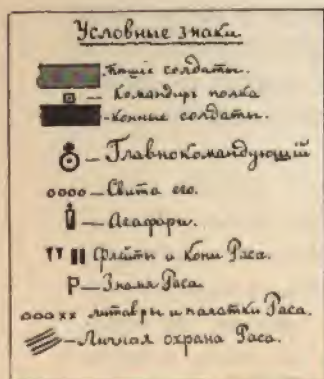 Условные знаки
Пѣшіе солдаты.
Командиръ полка
Конные солдаты.
Главнокомандующій
оооо – Свита его.
Агафари.
Флейты и Кони Раса.
Р – Знамя Раса.
ооо хх литавры и палатки Раса.
Личная охрана Раса.